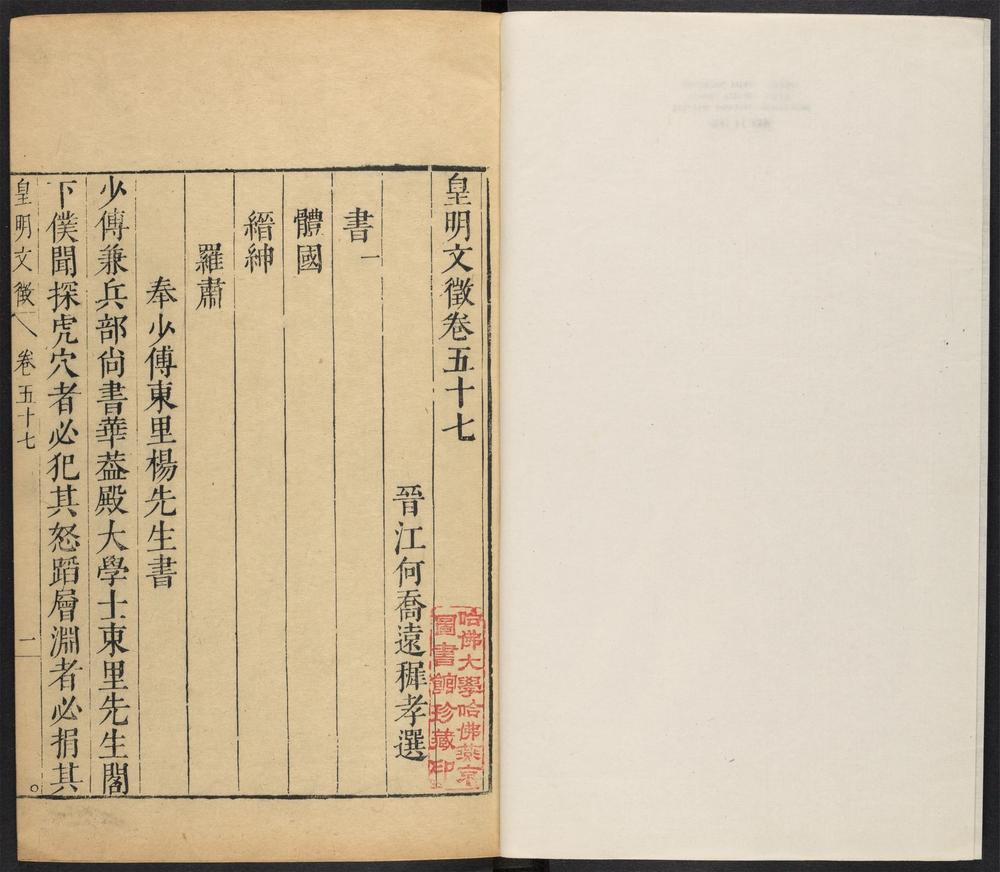 皇明文徵卷五十七
晉江何喬遠穉孝選
書一
體國
縉紳
羅肅
奉少傅東里楊先生書
少傅兼兵部尙書華葢殿大學士東里先生閣
下僕聞探虎穴者必犯其怒蹈層淵者必捐其
皇明文徵 卷五十七 一
哈佛大學哈佛燕京
圖書館珍藏印